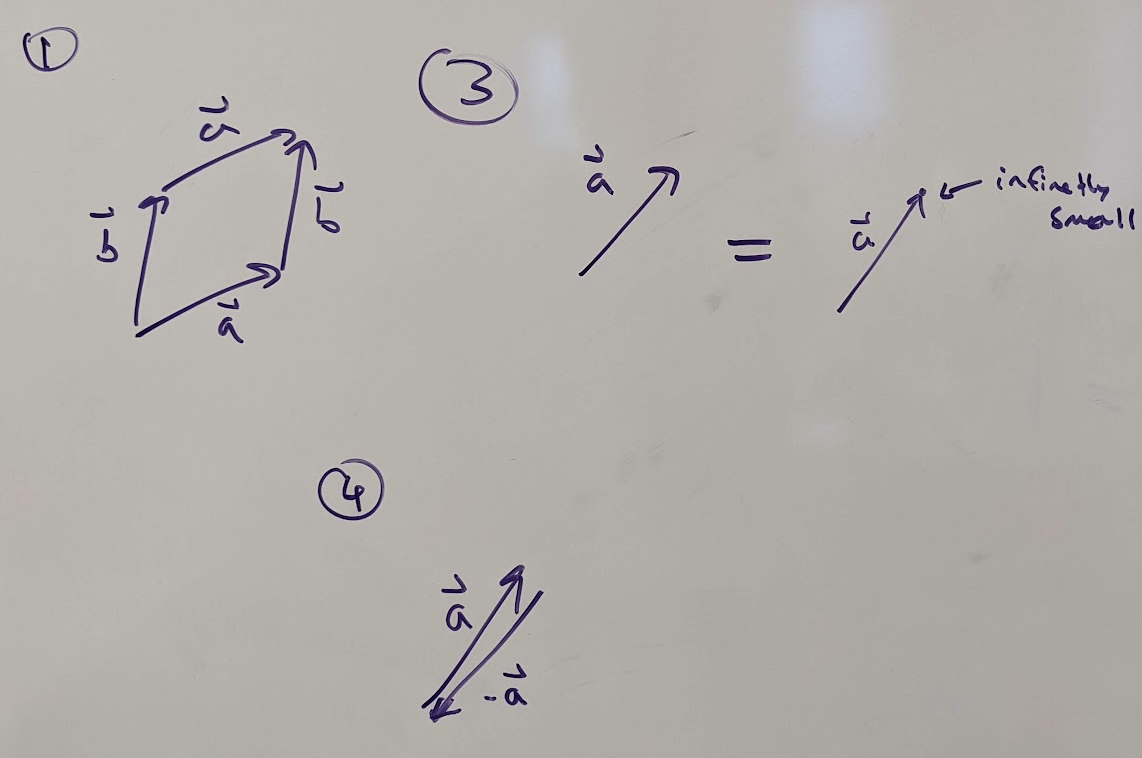 ①
③
a⃗
a⃗
b⃗
b⃗
a⃗
=
a⃗
infinetly
small
④
a⃗
-a⃗